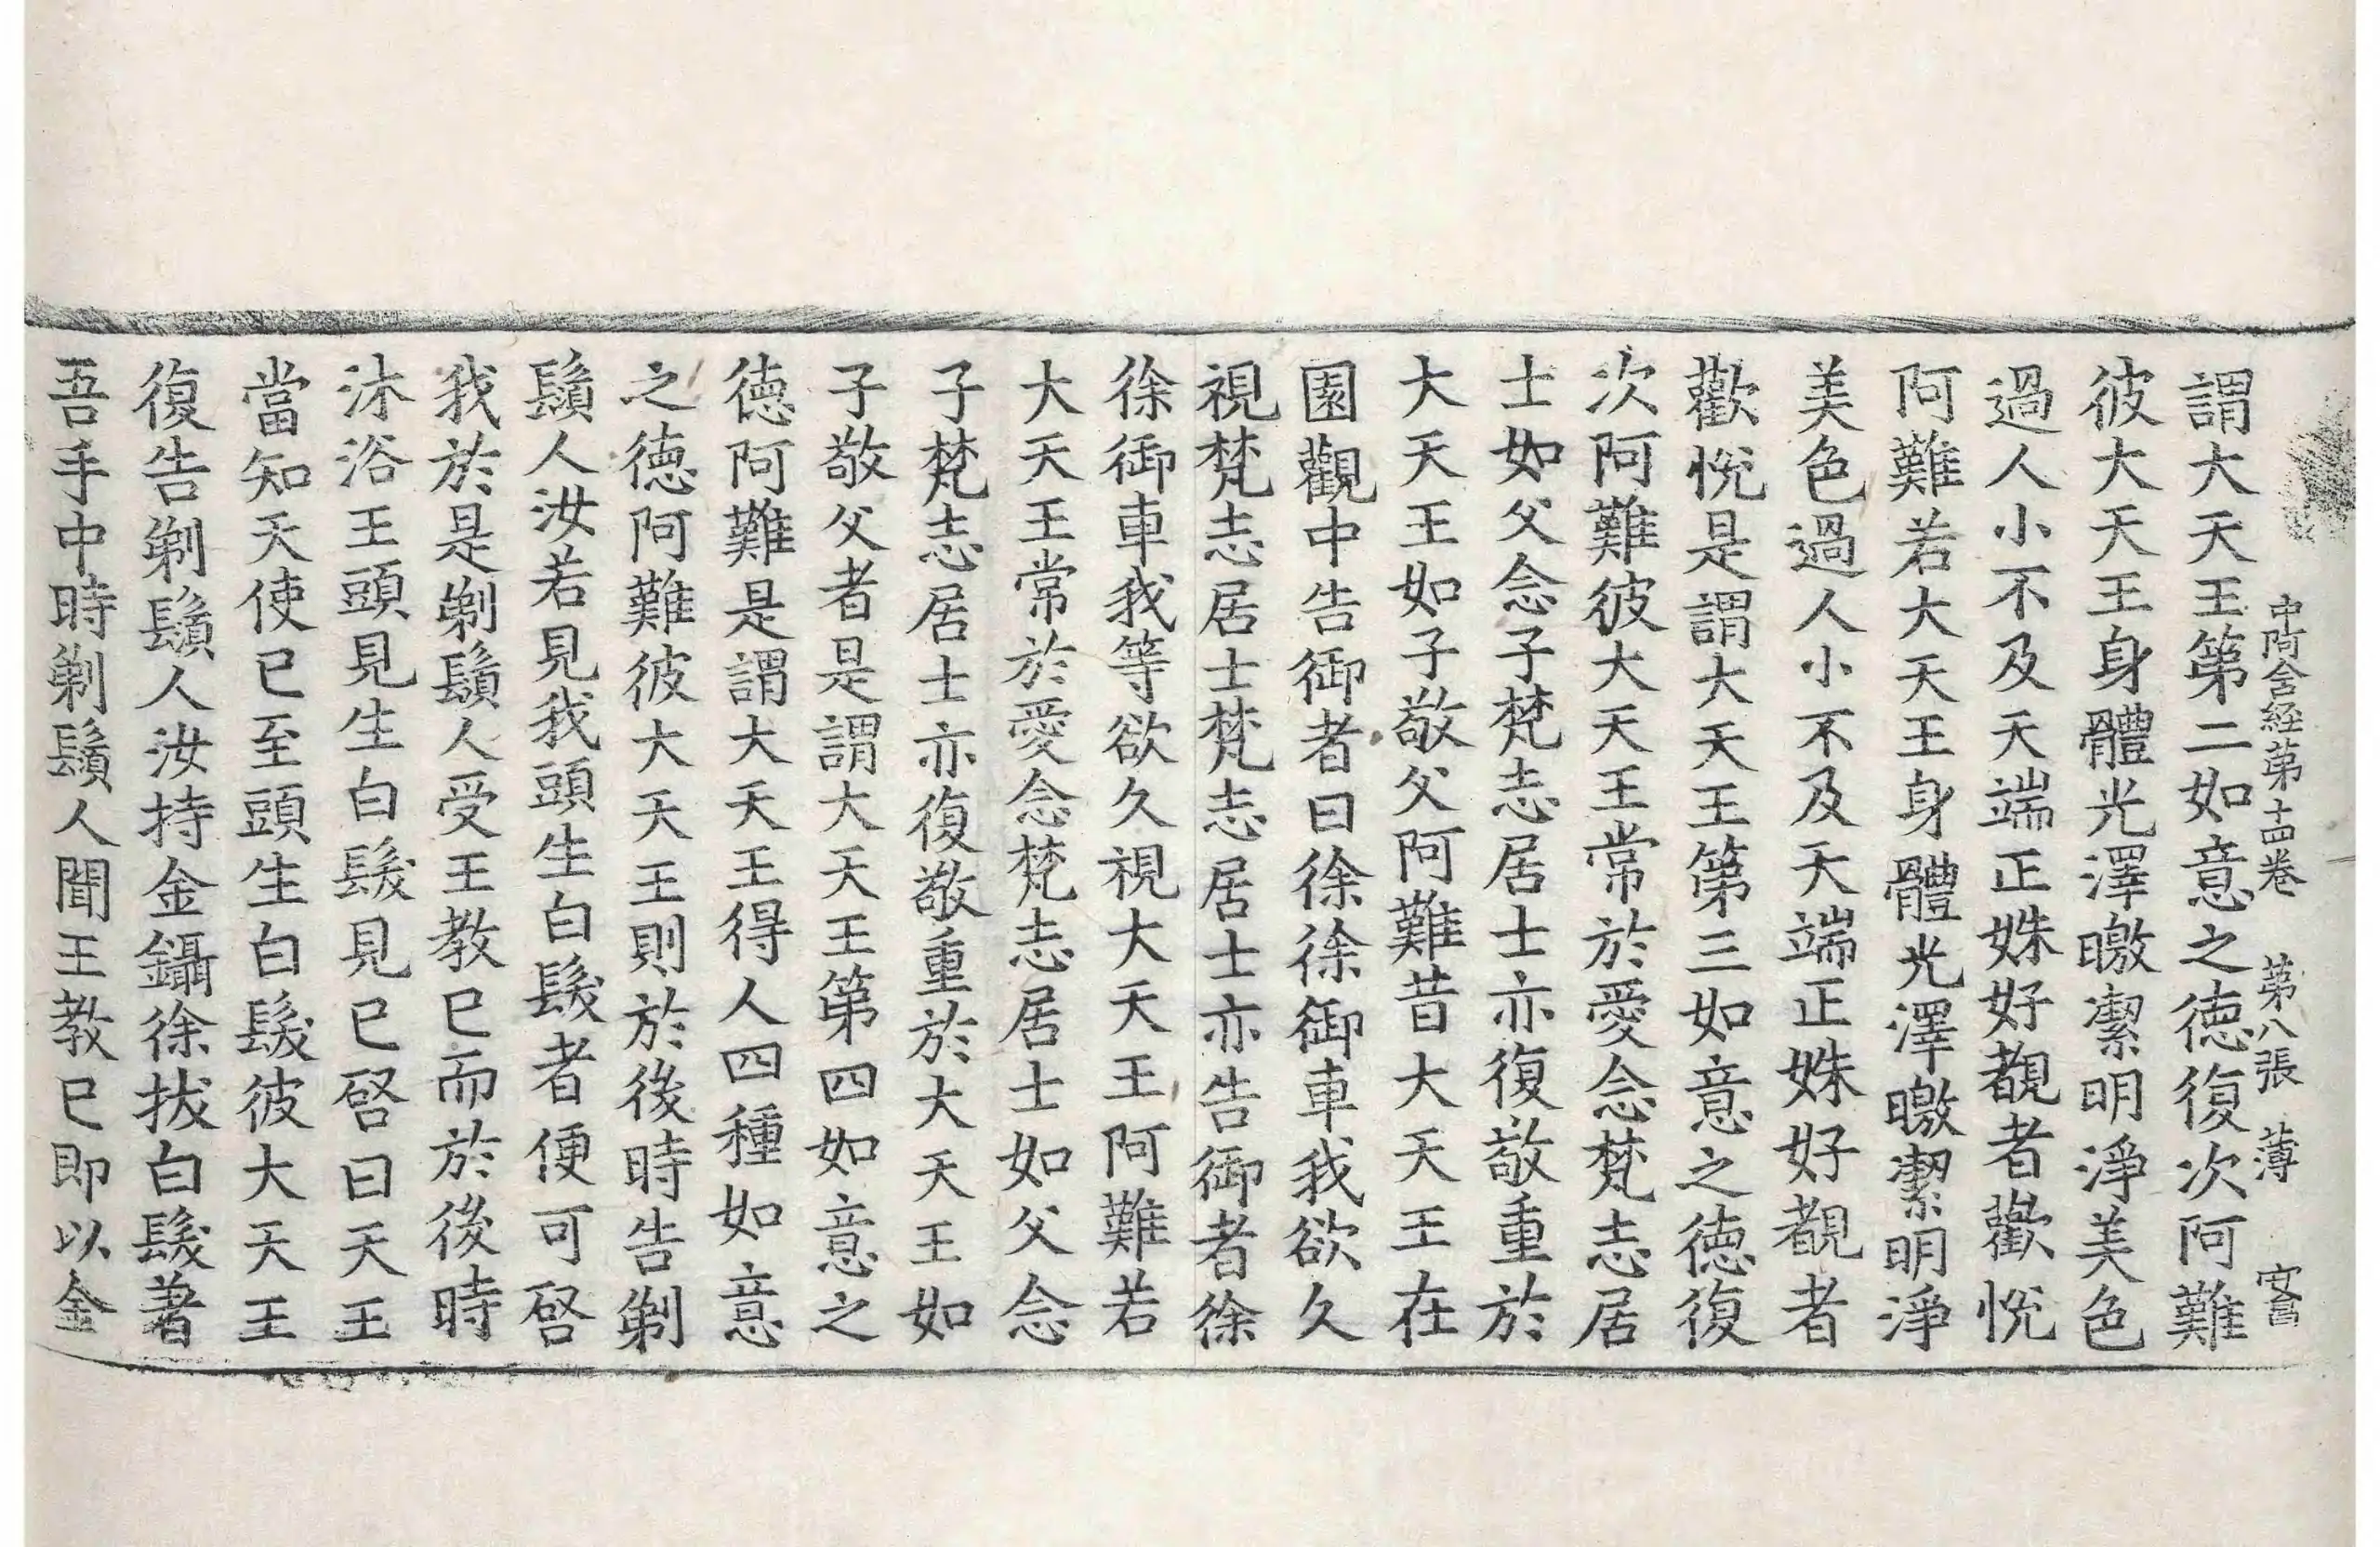 中阿含経第十四卷 第八張 薄
謂大天王第二如意之德復次阿難
彼大天王身體光澤曒潔明淨美色
過人小不及天端正姝好覩者歡悅
阿難若大天王身體光澤曒潔明淨
美色過人小不及天端正姝好覩者
歡悅是謂大天王第三如意之德復
次阿難彼大天王常於愛念梵志居
士如父念子梵志居士亦復敬重於
大天王如子敬父阿難昔大天王在
園觀中告御者曰徐徐御車我欲久
視梵志居士梵志居士亦告御者徐
徐御車我等欲久視大天王阿難若
大天王常於愛念梵志居士如父念
子梵志居士亦復敬重於大天王如
子敬父者是謂大天王第四如意之
德阿難是謂大天王得人四種如意
之德阿難彼大天王則於後時告剃
鬚人汝若見我頭生白髮者便可啓
我於是剃鬚人受王教已而於後時
沐浴王頭見生白髮見已啓曰天王
當知天使已至頭生白髮彼大天王
復告剃鬚人汝持金鑷徐拔白髮著
吾手中時剃鬚人聞王教已即以金